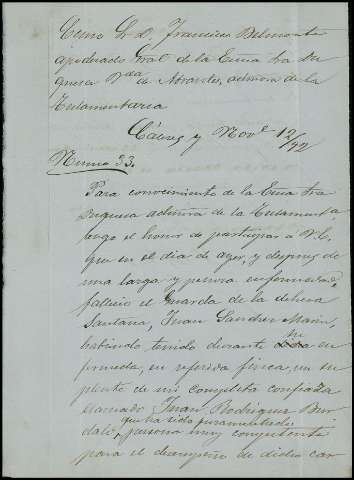 Excmo Sr D. Francisco Belmonte
apoderado Gral de la Exma Sra Du
quesa Vda de Abrantes, admora de la
Testamentaria
Cáceres y Nove 12/92
Numo 33.
Para conocimiento de la Exma Sra
Duquesa admora de la Testamenta
tengo el honor de participar a V.E.
que en el dia de ayer, y despues de
una larga y penosa enfermedad,
fallecio el Guarda de la dehesa
Santana, Juan Sanchez Marin,
habiendo tenido durante su en
fermedad, en referida finca, un su
plente de mi completa confianza
llamado Juan Rodriguez Bur
dalo, que ha sido juramentado
persona muy competente
para el desempeño de dicho car